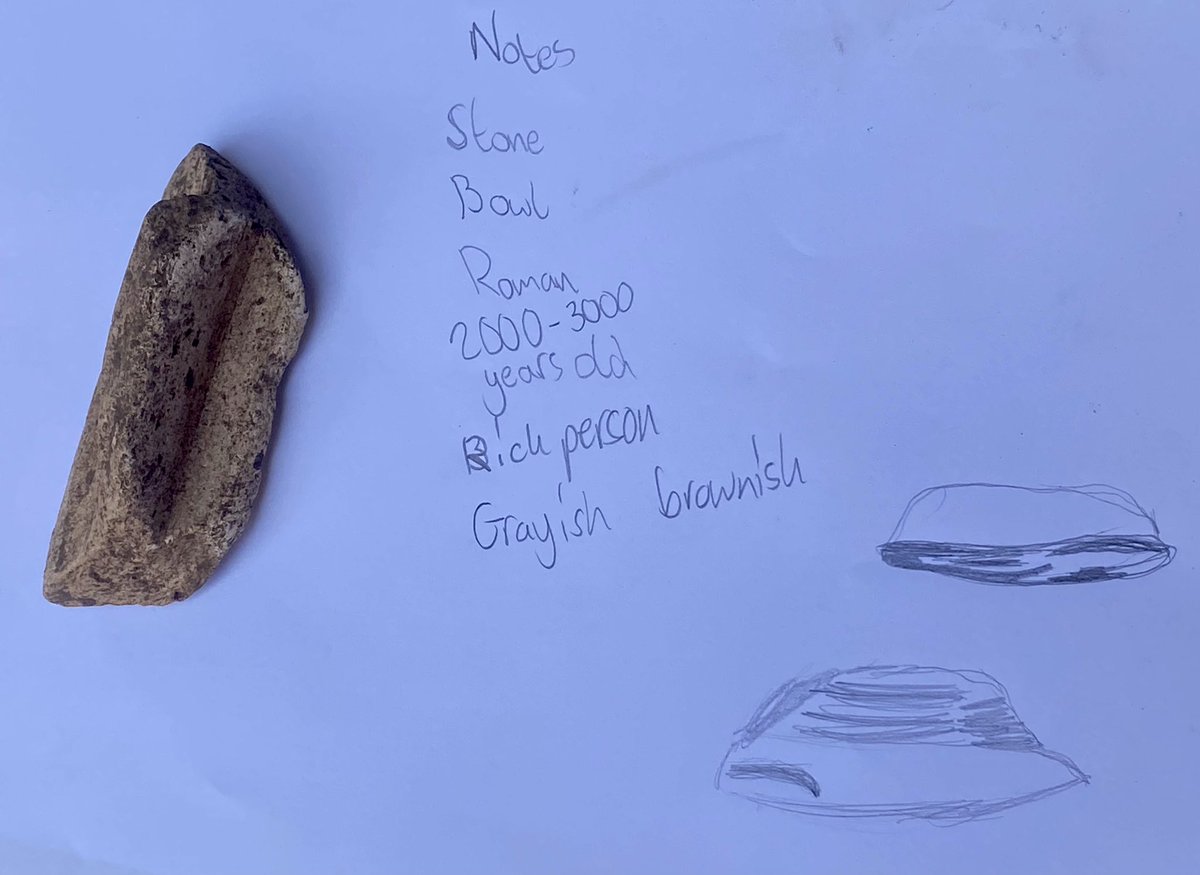 Notes
Stone
Bowl
Roman
2000-3000
years old
Rich person
Grayish brownish